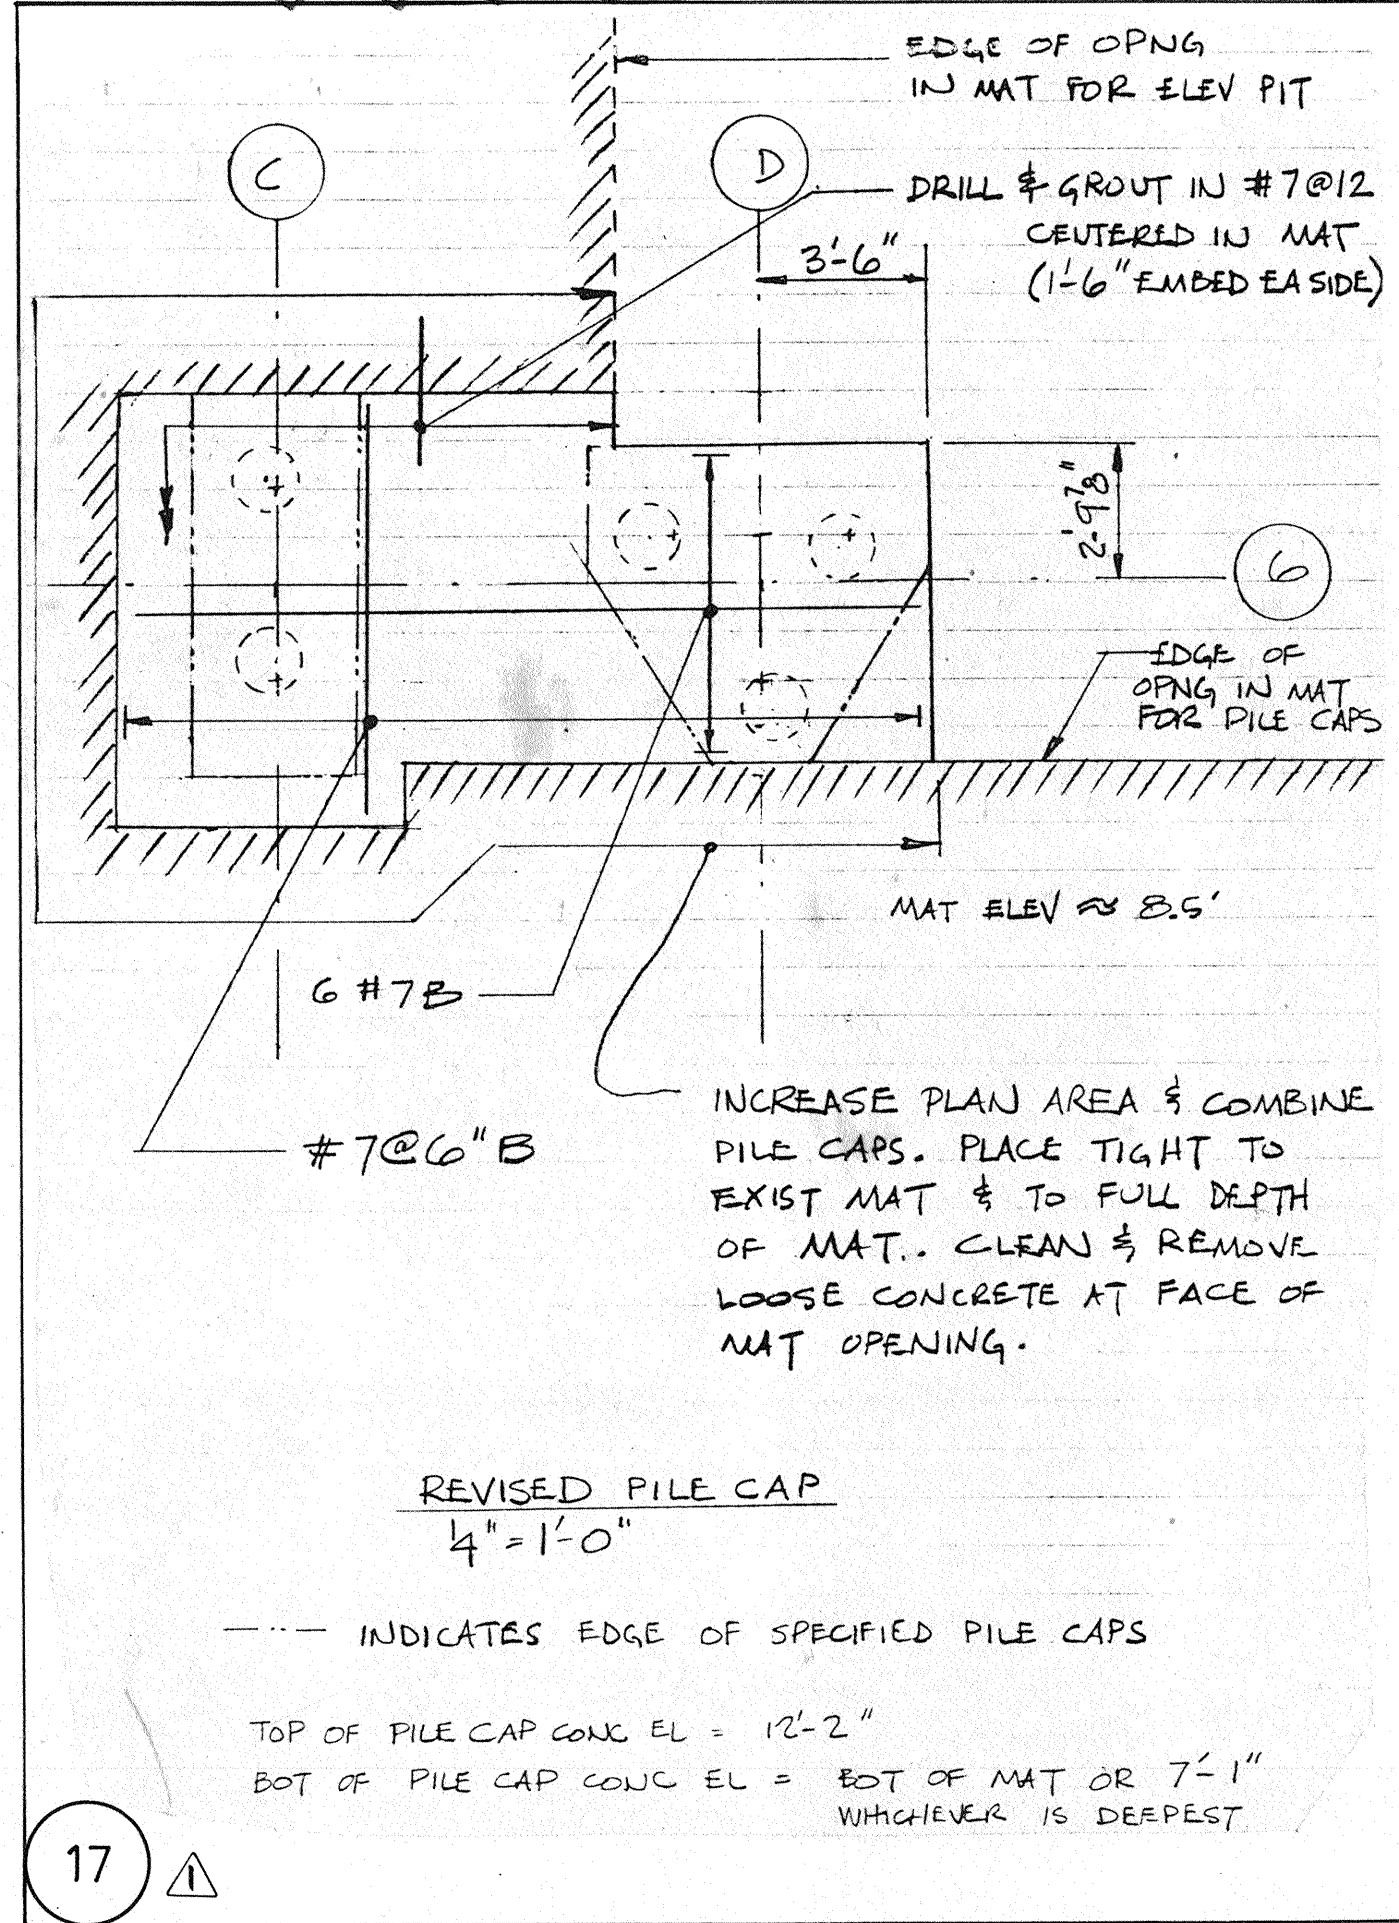 EDGE OF OPNG
IN MAT FOR ELEV PIT
C
D
DRILL & GROUT IN #7@12
CENTERED IN MAT
(1'-6" EMBED EA SIDE)
3'-6"
2'-9⅞"
6
EDGE OF
OPNG IN MAT
FOR PILE CAPS
MAT ELEV ≈ 8.5'
6 #7B
#7@6"B
INCREASE PLAN AREA & COMBINE
PILE CAPS. PLACE TIGHT TO
EXIST MAT & TO FULL DEPTH
OF MAT.. CLEAN & REMOVE
LOOSE CONCRETE AT FACE OF
MAT OPENING.
REVISED PILE CAP
¼" = 1'-0"
INDICATES EDGE OF SPECIFIED PILE CAPS
TOP OF PILE CAP CONC EL = 12'-2"
BOT OF PILE CAP CONC EL = BOT OF MAT OR 7'-1"
WHICHEVER IS DEEPEST
17
1